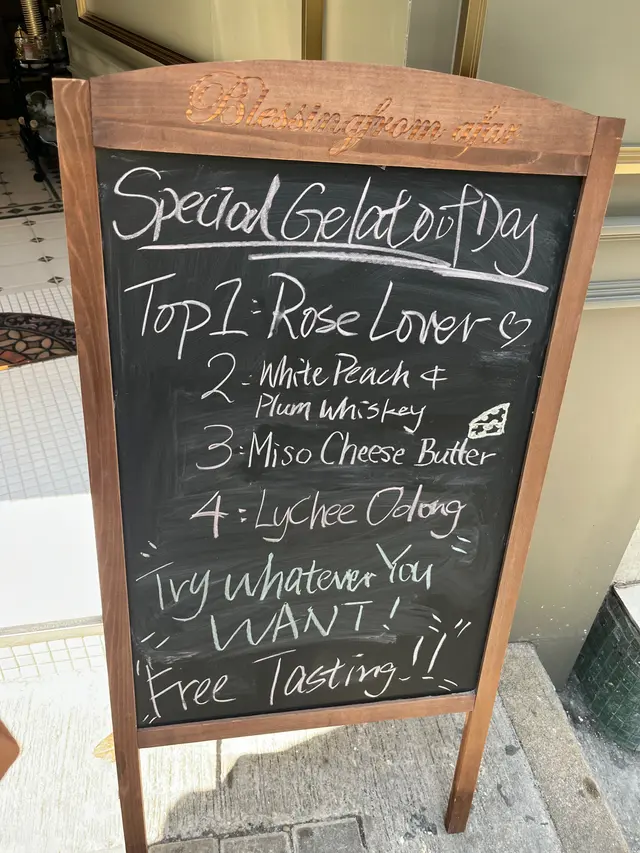 Blessing from afar
Special Gelato of Day
Top 1: Rose Lover
2- White Peach &
Plum Whiskey
3: Miso Cheese Butter
4: Lychee Oolong
Try Whatever You
WANT!
"Free Tasting!!"